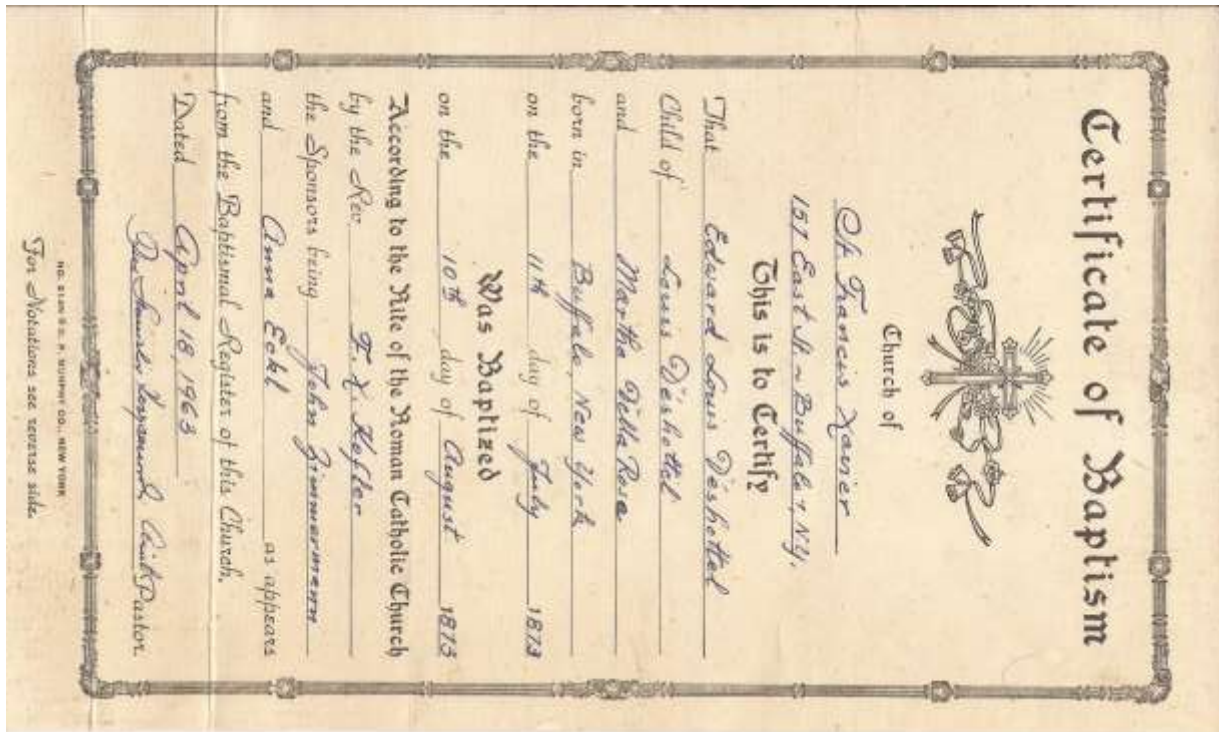 Certificate of Baptism
Church of
St Francis Xavier
157 East St ~ Buffalo 7, N.Y.
This is to Certify
That Edward Louis Deshottel
Child of Louis Deshottel
and Martha Della Rosa
born in Buffalo, New York
on the 11th day of July 1873
Was Baptized
on the 10th day of August 1873
According to the Rite of the Roman Catholic Church
by the Rev. F. X. Kofler
the Sponsors being John Zimmermann
and Anna Eckl as appears
from the Baptismal Register of this Church.
Dated April 18, 1963
Pastor.
NO. P. MURPHY CO., NEW YORK
For Notations see reverse side.